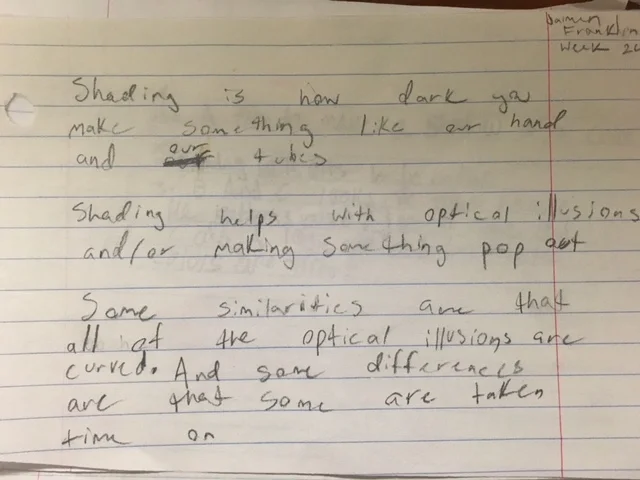 Daimen
Franklin
Week 26
Shading is how dark you
make something like our hand
and our tubes
Shading helps with optical illusions
and/or making something pop out
Some similarities are that
all of the optical illusions are
curved. And some differences
are that some are taken
time on